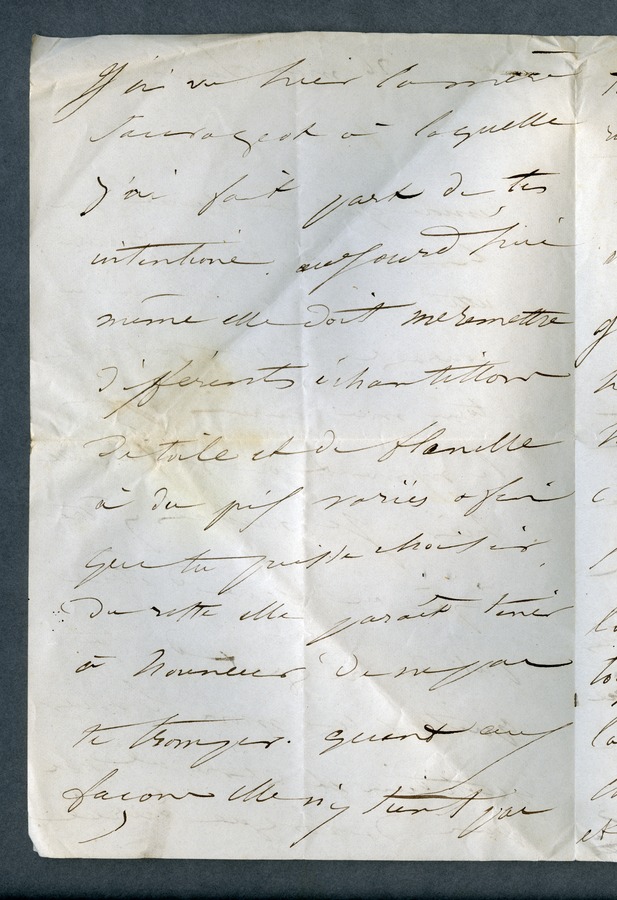 J'ai vu hier la mère
à laquelle
j'ai fait part de tes
intentions. aujourd'hui
même elle doit me remettre
différents échantillons
de toile et de flanelle
à du prix variés afin
que tu puisse choisir.
Du reste elle paraît tenir
à honneur de ne pas
te tromper. quant aux
façons elle n'y tient pas
et